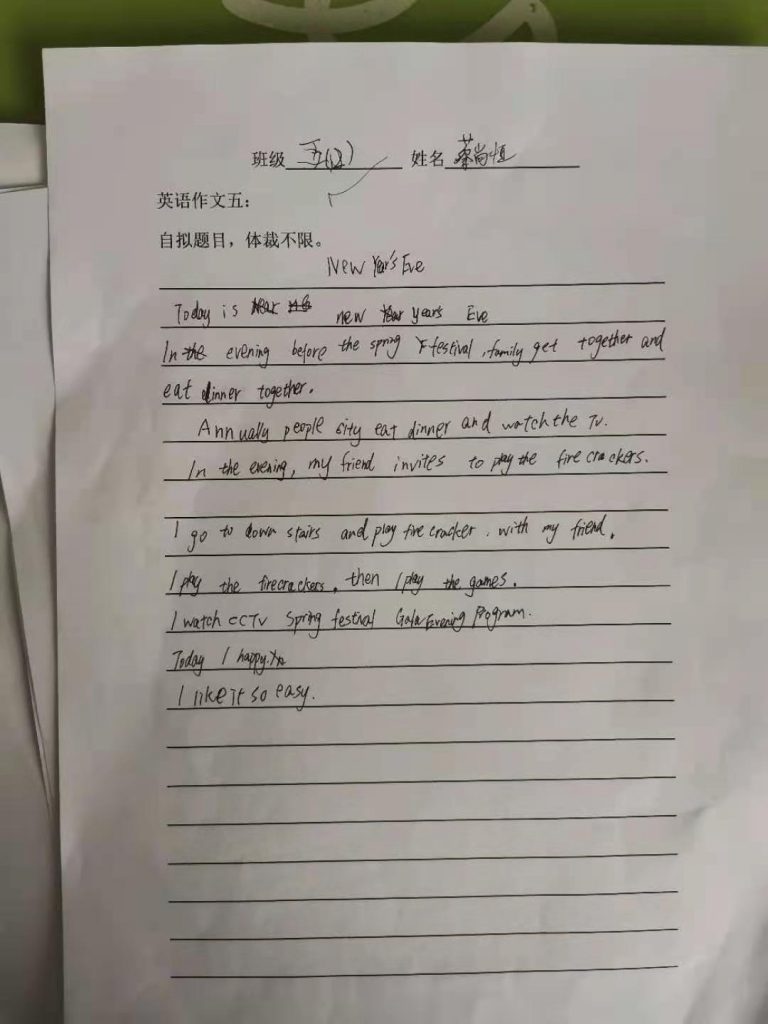 班级 五(12) 姓名 蔡尚恒
英语作文五：
自拟题目，体裁不限。
New Year's Eve
Today is new years Eve
In the evening before the spring Festival, family get together and
eat dinner together.
Annually people sity eat dinner and watch the Tv.
In the evening, my friend invites to play the fire crackers.
I go to down stairs and play fire cracker. with my friend.
I play the firecrackers. then I play the games.
I watch CCTV Spring festival Gala Evening Program.
Today I happy.
I like it so easy.